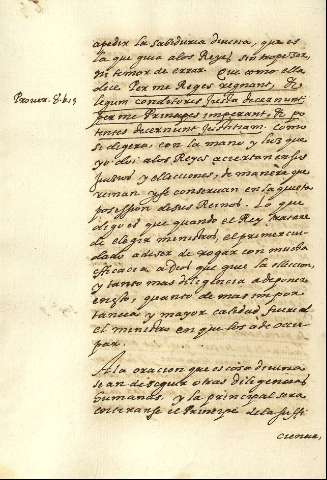 apedir la sabiduria divina, que es
la que guia alos Reyes sin tropeçar,
ni temor de errar. Que como ella
Prover. 8. b. 15
dice Per me Reges regnant, &
legum conditores Justa decernunt,
per me Principes imperant, & po
tentes decernunt Justitiam. Como
si digera, con la mano y luz que
yo doi alos Reyes aciertan en sus
Juicios y elecciones, de manera que
reinan y se conservan en la quieta
possession de sus Reinos. Lo que
digo es que quando el Rey tratare
de elegir ministros, el primer cui
dado a de ser de rogar con mucha
eficacia a Dios que guie la eleccion,
y tanto mas diligencia a de poner
en esto, quanto de mas impor
tancia y mayor calidad fuere
el ministro en que los a de occu
par.
A la oracion que es cosa divina
se an de seguir otras diligencias
humanas. y la principal sera
el Principe de la suffi
ciencia,